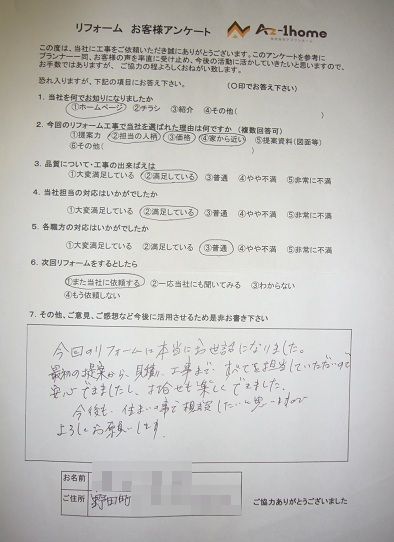 リフォーム お客様アンケート
Az-1home
この度は、当社に工事をご依頼いただき誠にありがとうございます。このアンケートを参考に
プランナー一同、お客様の声を率直に受け止め、今後の活動に活かしていきたいと思いますので、
お手数ではありますが、ご協力の程よろしくおねがい致します。
恐れ入りますが、下記の項目にお答え下さい。 (○印でお答え下さい)
1. 当社を何でお知りになりましたか
①ホームページ ②チラシ ③紹介 ④その他( )
2. 今回のリフォーム工事で当社を選ばれた理由は何ですか (複数回答可)
①提案力 ②担当の人柄 ③価格 ④家から近い ⑤提案資料(図面等)
⑥その他( )
3. 品質について・工事の出来ばえは
①大変満足している ②満足している ③普通 ④やや不満 ⑤非常に不満
4. 当社担当の対応はいかがでしたか
①大変満足している ②満足している ③普通 ④やや不満 ⑤非常に不満
5. 各職方の対応はいかがでしたか
①大変満足している ②満足している ③普通 ④やや不満 ⑤非常に不満
6. 次回リフォームをするとしたら
①また当社に依頼する ②一応当社にも聞いてみる ③わからない
④もう依頼しない
7. その他、ご意見、ご感想など今後に活用させるため是非お書き下さい
今回のリフォームは本当にお世話になりました。
最初の提案から、見積り、工事まで、すべてを担当していただいたので
安心できましたし、打合せも楽しくできました。
今後も、住まいの事で相談したいと思いますので
よろしくお願いします。
お名前
ご住所 野田町
ご協力ありがとうございました